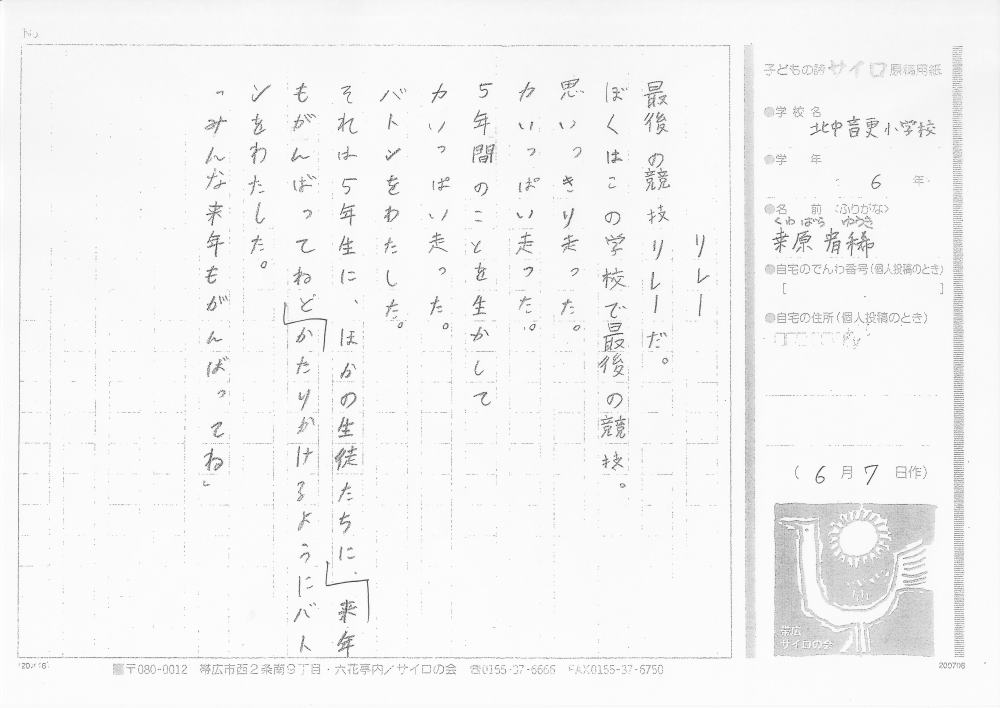 No.
リレー
最後の競技リレーだ。
ぼくはこの学校で最後の競技。
思いっきり走った。
力いっぱい走った。
5年間のことを生かして
力いっぱい走った。
バトンをわたした。
それは5年生に、ほかの生徒たちに、来年
もがんばってねとかたりかけるようにバト
ンをわたした。
「みんな来年もがんばってね」
子どもの詩 サイロ 原稿用紙
●学校名
北中音更小学校
●学 年
6 年
●名 前 〈ふりがな〉
くわばら ゆうき
桑原
●自宅のでんわ番号(個人投稿のとき)
[ ]
●自宅の住所(個人投稿のとき)
(6月7日作)
帯広
サイロの会
〒080-0012 帯広市西2条南9丁目・六花亭内/サイロの会 ☎0155-37-6666 FAX0155-37-6750
200706